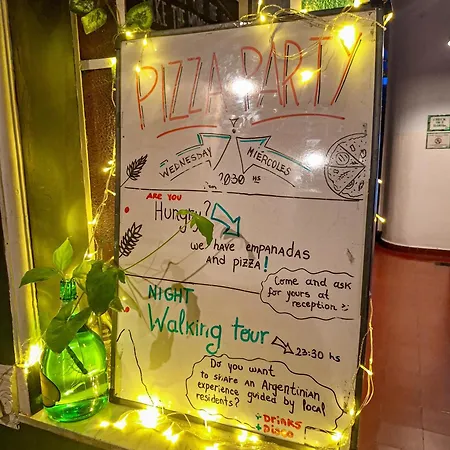 PIZZA PARTY
WEDNESDAY
MIÉRCOLES
2030 HS
ARE YOU
Hungry?
we have empanadas
and pizza!
Come and ask
for yours at
reception :)
NIGHT
Walking tour
23:30 hs
Do you want
to share an Argentinian
experience guided by local
residents?
+DRINKS
+DISCO